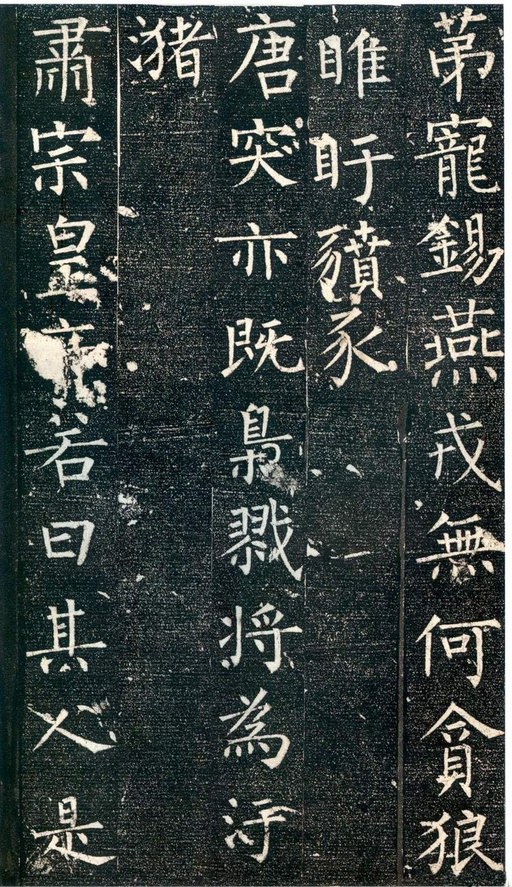 苐寵錫燕戎無何貪狼
睢盱豶豕
唐突亦既梟戮将為汙
潴
肅宗皇帝若曰其人是